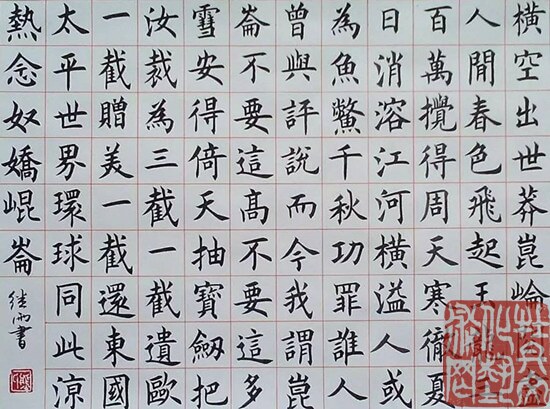 橫空出世莽崑崘
人間春色飛起玉
百萬攪得周天寒徹夏
日消溶江河橫溢人或
為魚鱉千秋功罪誰人
曾與評說而今我謂崑
崙不要這高不要這多
雪安得倚天抽寶劒把
汝裁為三截一截遺歐
一截贈美一截還東國
太平世界環球同此涼
熱念奴嬌崐崙
書